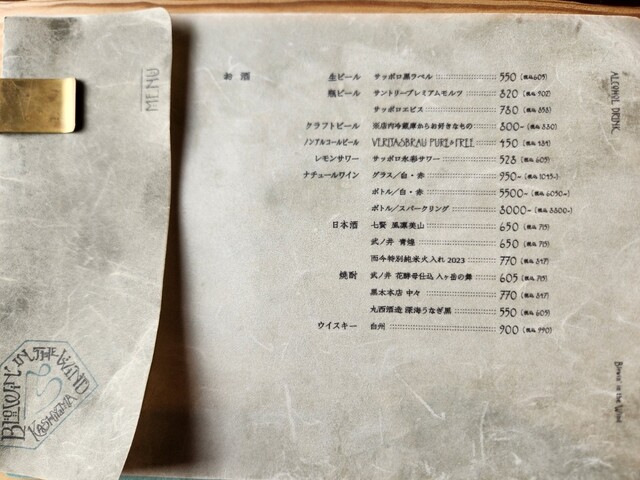 MENU
BLOWIN' IN THE WIND
KASHIGINA
お酒
生ビール サッポロ黒ラベル 550 (税込605)
瓶ビール サントリープレミアムモルツ 820 (税込902)
サッポロエビス 780 (税込858)
クラフトビール ※店内冷蔵庫からお好きなもの 800~ (税込880)
ノンアルコールビール VERITASBRAU PURE & FREE 450 (税込484)
レモンサワー サッポロ氷彩サワー 528 (税込605)
ナチュールワイン グラス/白・赤 950~ (税込1045~)
ボトル/白・赤 5500~ (税込6050~)
ボトル/スパークリング 8000~ (税込8800~)
日本酒 七賢 風凛美山 650 (税込715)
武ノ井 青煌 650 (税込715)
而今特別純米火入れ 2023 770 (税込847)
焼酎 武ノ井 花酵母仕込 八ヶ岳の舞 605 (税込715)
黒木本店 中々 770 (税込847)
丸西酒造 深海うなぎ黒 550 (税込605)
ウイスキー 白州 900 (税込990)
ALCOHOL DRINK
Blowin' in the Wind